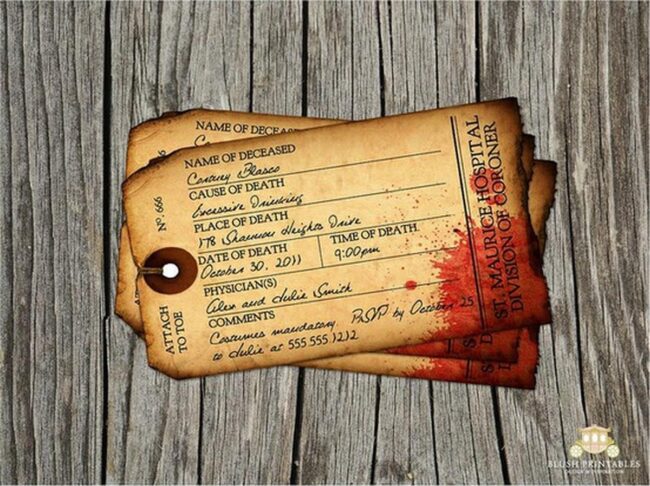 NAME OF DECEASED
NAME OF DECEASED
CAUSE OF DEATH
Excessive Drinking
PLACE OF DEATH
178 Heights Drive
DATE OF DEATH
TIME OF DEATH
October 30, 2011
9:00pm
PHYSICIAN(S)
Alex and Julie Smith
COMMENTS
Costumes mandatory. RSVP by October 25
to Julie at 555.555.1212
Nº. 666
ATTACH
TO TOE
ST. MAURICE HOSPITAL
DIVISION OF CORONER
BLUSH PRINTABLES